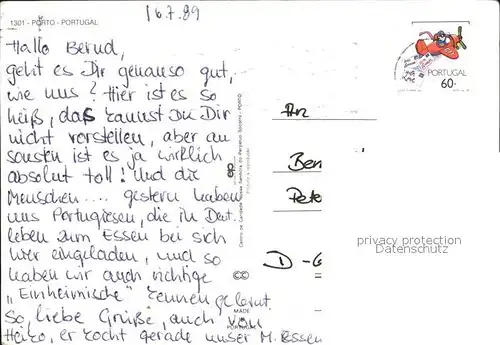 16.7.89
1301 - PORTO - PORTUGAL
Hallo Bernd,
geht es Dir genauso gut,
wie uns? Hier ist es so
heiß, daß kannst Du Dir
nicht vorstellen, aber an
sonsten ist es ja wirklich
absolut toll! Und die
Menschen.... gestern haben
uns Portugiesen, die in Deut.
leben zum Essen bei sich
hier eingeladen, und so
haben wir auch richtige
„Einheimische" kennen gelernt.
So, liebe Grüße, auch von
Heiko, er kocht gerade unser M. Essen
PORTUGAL
60.-
An
Ben
Pete
D - G
privacy protection
Datenschutz
MADE
IN
PORTUGAL